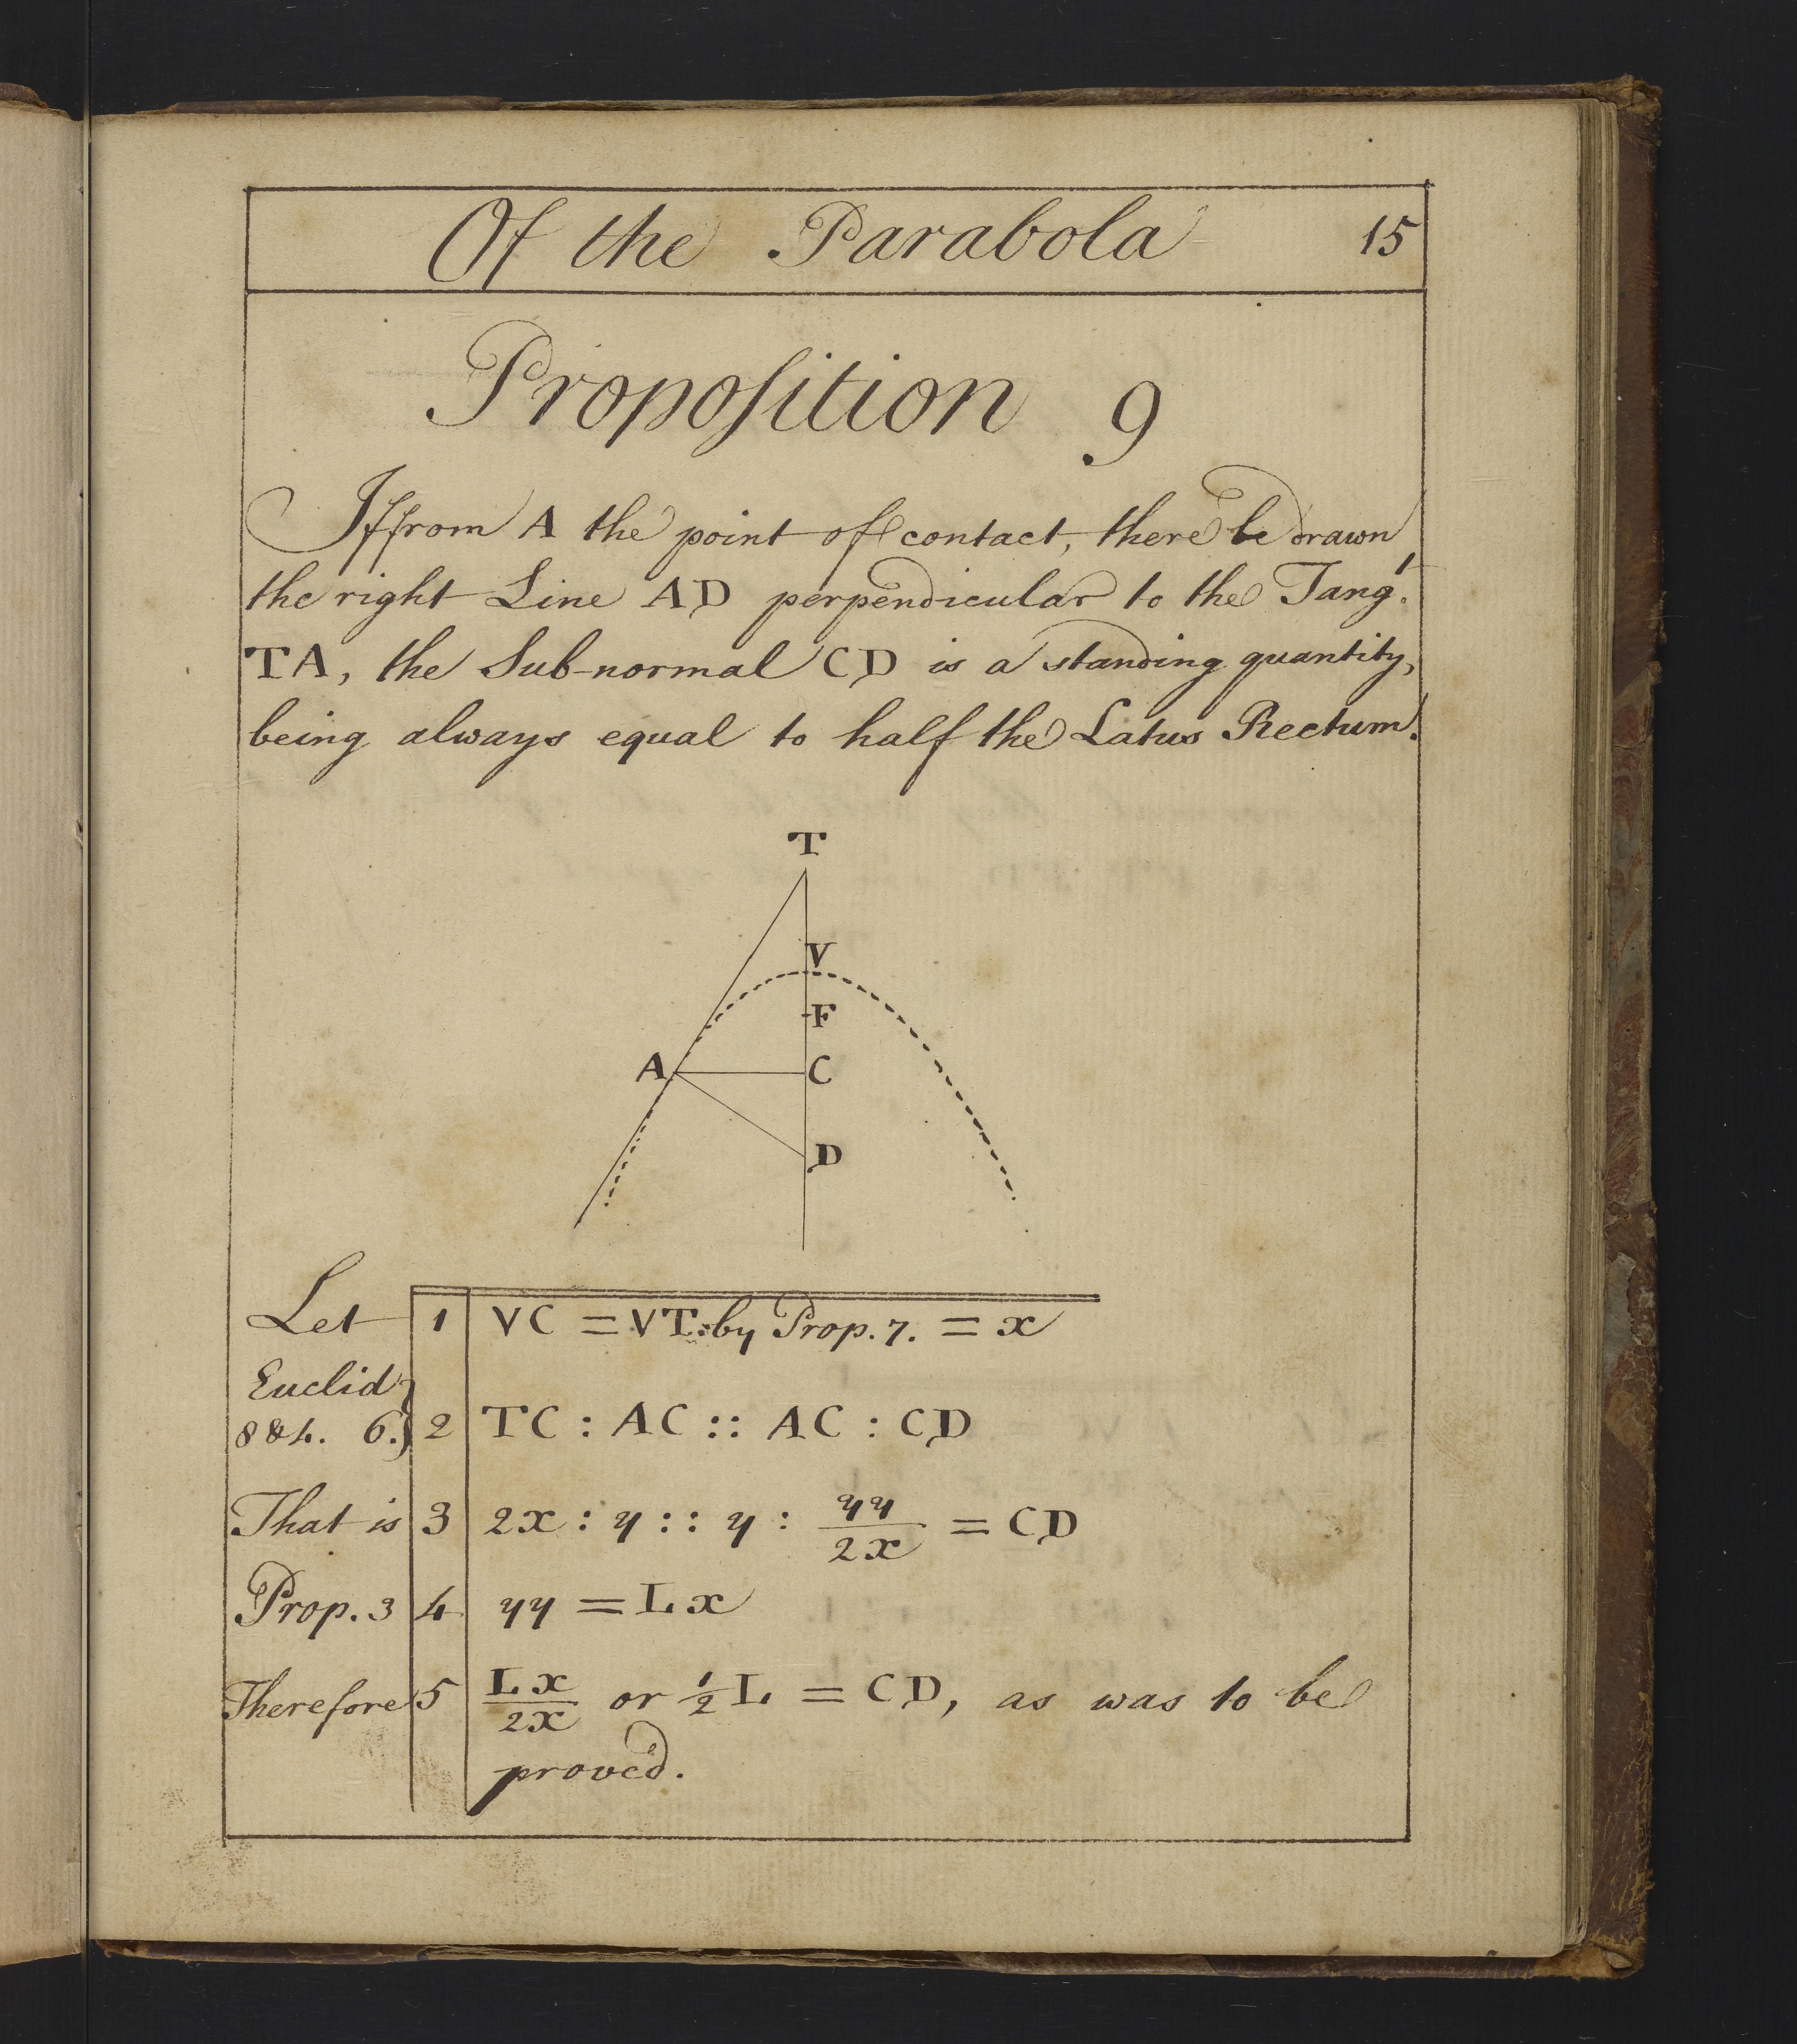 Of the Parabola 15
Propoſition 9
If from A the point of contact, there be drawn
the right Line AD perpendicular to the Tang.t
TA, the Sub-normal CD is a standing quantity,
being always equal to half the Latus Rectum.
T
V
F
A C
D
Let 1 VC = VT: by Prop. 7. = x
Euclid }
8 & 4. 6. } 2 TC : AC :: AC : CD
That is 3 2x : y :: y : yy/2x = CD
Prop. 3 4 yy = Lx
Therefore 5 Lx/2x or ½ L = CD, as was to be
prov'd.